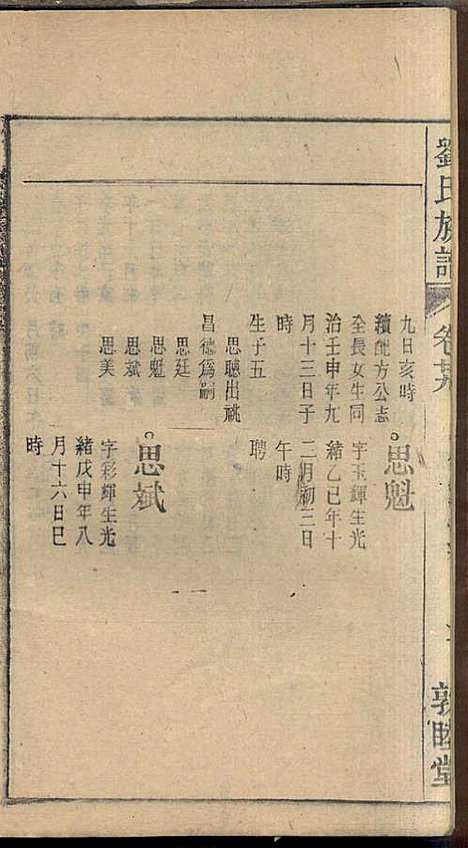 劉氏族譜
卷
敦睦堂
九日亥時
續配方公志
全長女生同
治壬申年九
月十三日于
時
生子五
思聰出祧
昌德爲嗣
思廷
思魁
思斌
思美
思魁
字玉輝生光
緒乙巳年十
二月初三日
午時
聘
思斌
字彩輝生光
緒戊申年八
月十六日巳
時